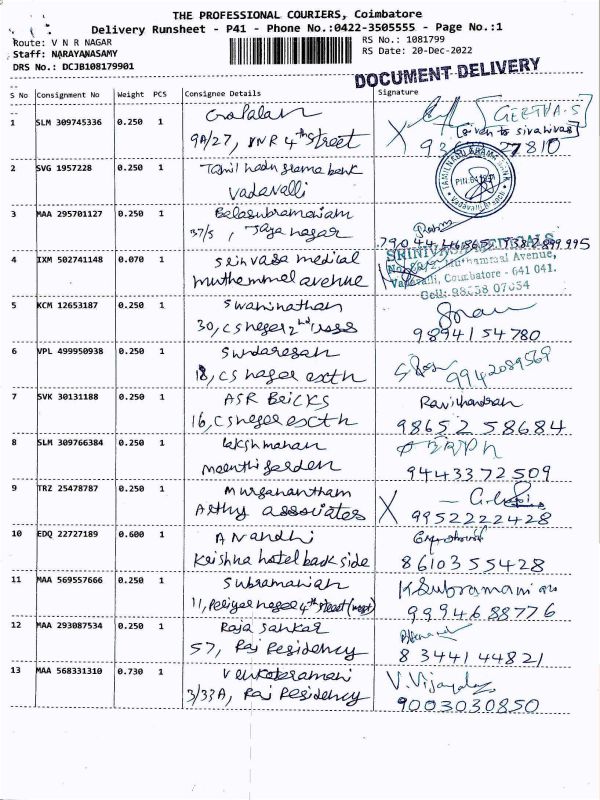 THE PROFESSIONAL COURIERS, Coimbatore
Delivery Runsheet - P41 - Phone No.:0422-3505555 - Page No.:1
Route: V N R NAGAR
RS No.: 1081799
Staff: NARAYANASAMY
RS Date: 20-Dec-2022
DRS No.: DCJB108179901
DOCUMENT DELIVERY
S No Consignment No Weight PCS Consignee Details Signature
1 SLM 309745336 0.250 1 Gopalan GEETHA.S
[given to sivanivas]
9A/27, VNR 4th street
2 SVG 1957228 0.250 1 Tamil nadu grama bank
vadavalli
TAMILNADU GRAMA BANK
Vadavalli Branch
3 MAA 295701127 0.250 1 Balasubramaniam
37/5, Jaya nagar
4 IXM 502741148 0.070 1 Srinivasa medical
SRINIVASA MEDICALS
muthammal avenue
Muthammal Avenue,
Vadavalli, Coimbatore - 641 041.
Cell: 98658 07054
5 KCM 12653187 0.250 1 Swaminathan
30, CS nagar 2nd cross 9894154780
6 VPL 499950938 0.250 1 Sundaresan
18, CS nagar extn 9942089569
7 SVK 30131188 0.250 1 ASR Bricks Ravichandran
16, CS nagar extn 98652 58684
8 SLM 309766384 0.250 1 lakshmanan
garden 9443372509
9 TRZ 25478787 0.250 1 Muruganantham
Arthy associates 9952222428
10 EDQ 22727189 0.600 1 Anandhi
Krishna hotel back side 8610355428
11 MAA 569557666 0.250 1 Subramanian K Subramanian
11, Periyar nagar 4th street (west) 9994688776
12 MAA 293087534 0.250 1 Raja Sankar
57, Raj Residency 8344144821
13 MAA 568331310 0.730 1 Venkataramani V. Vijayalaxmi
3/33A, Raj Residency 9003030850